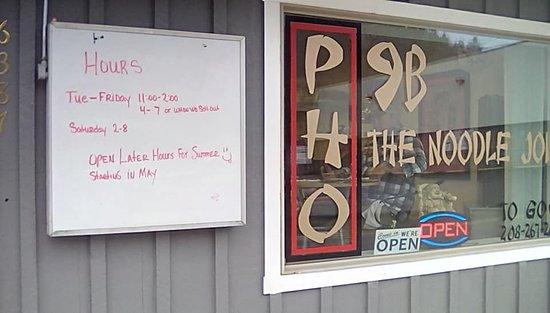 HOURS
TUE-FRIDAY 11:00-2:00
4-7 OR WHEN WE SELL OUT
SATURDAY 2-8
OPEN LATER HOURS FOR SUMMER
STARTING IN MAY
PHO
9B
THE NOODLE JO
TO GO
208-267-2
WE'RE
OPEN
OPEN